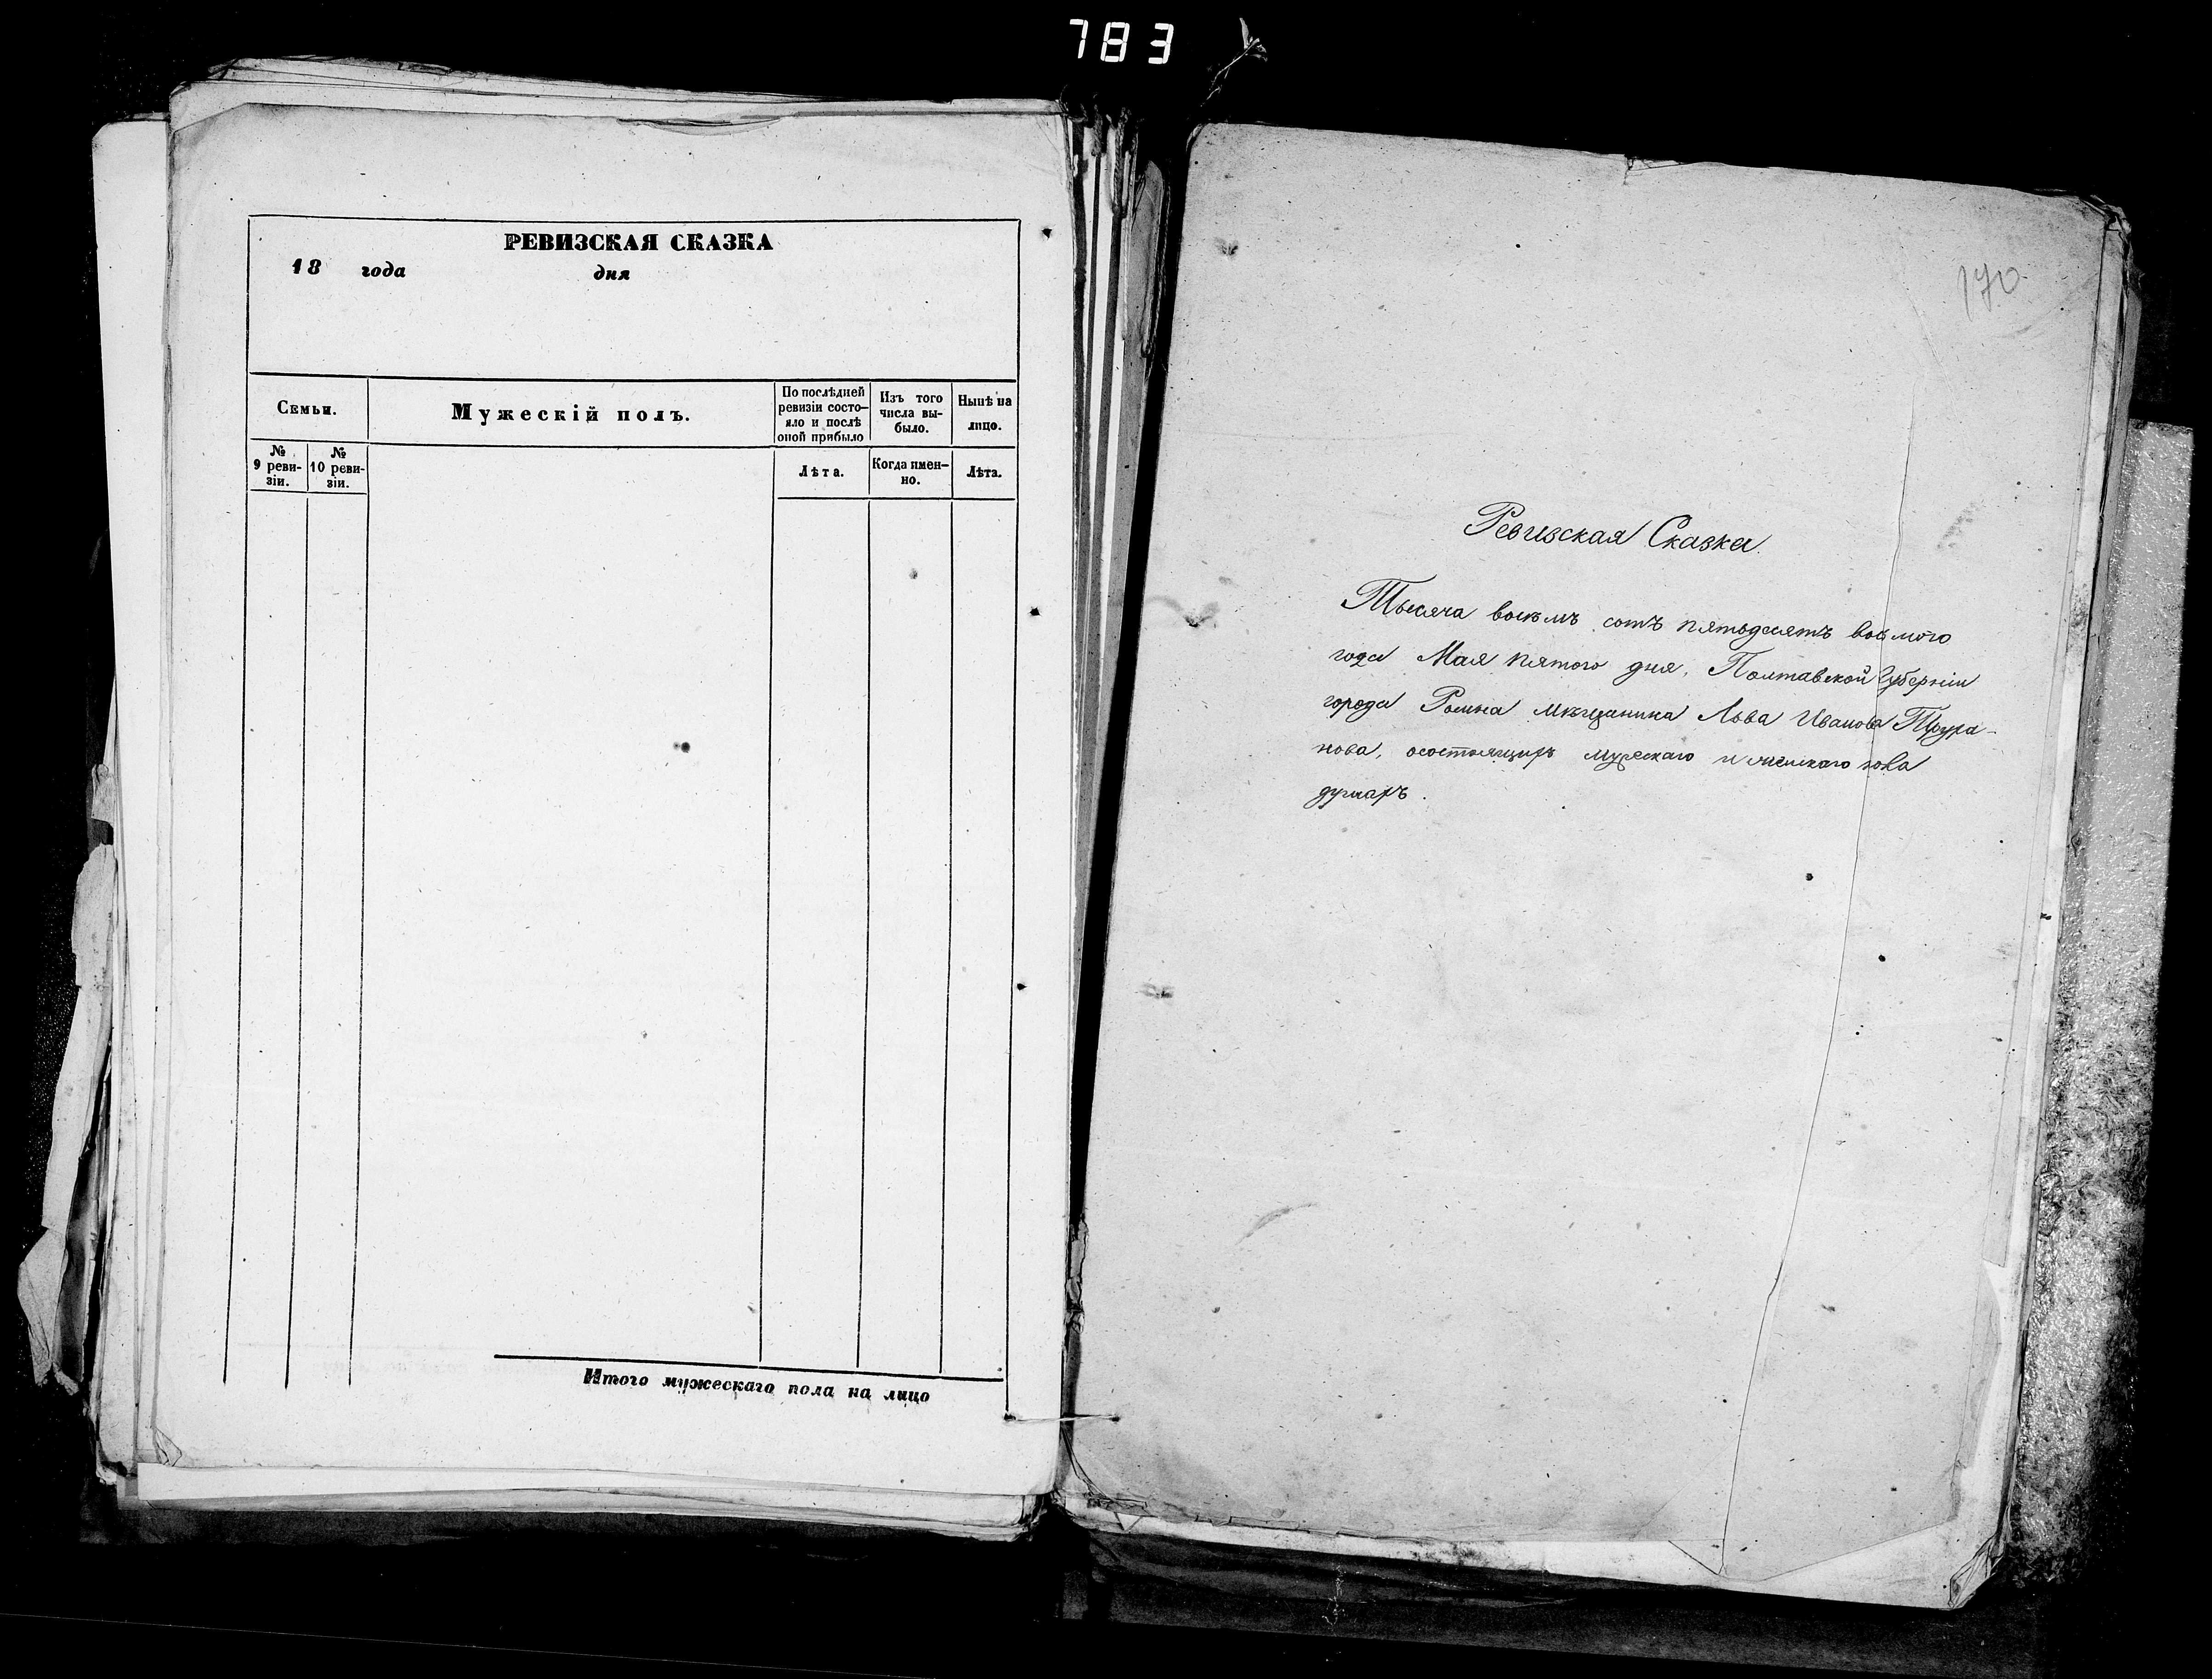 783
РЕВИЗСКАЯ СКАЗКА
18 года дня
Семьи.
Мужескій полъ.
По послѣдней
ревизіи состо-
яло и послѣ
оной прибыло
Изъ того
числа вы-
было.
Нынѣ на
лицо.
№
9 реви-
зіи.
№
10 реви-
зіи.
Лѣта.
Когда имен-
но.
Лѣта.
Итого мужескаго пола на лицо
170
Ревизская Сказка.
Тысяча восемь сотъ пятьдесятъ восмого
года Мая пятого дня, Полтавской Губерніи
города Ромна мѣщанина Льва Иванова
нова, осостоящихъ мужескаго и женскаго пола
душахъ.